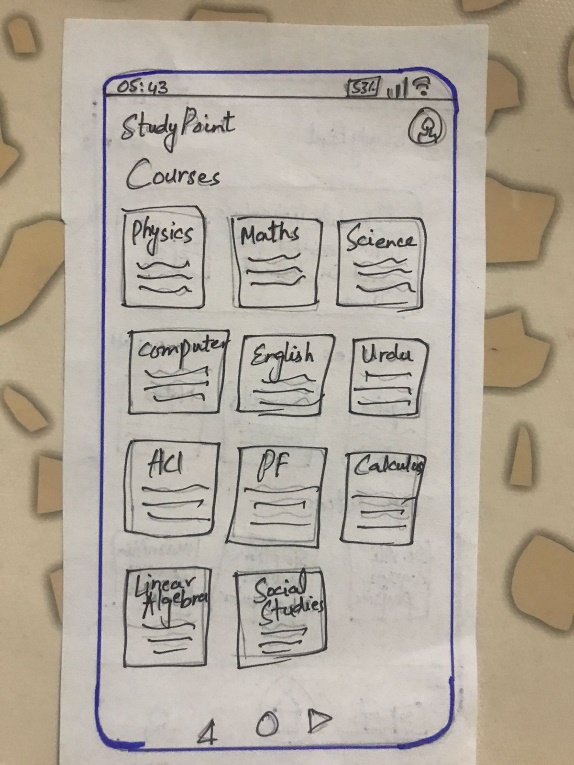 05:43 53%
StudyPoint
Courses
Physics Maths Science
Computer English Urdu
ACI PF Calculus
Linear
Algebra
Social
Studies